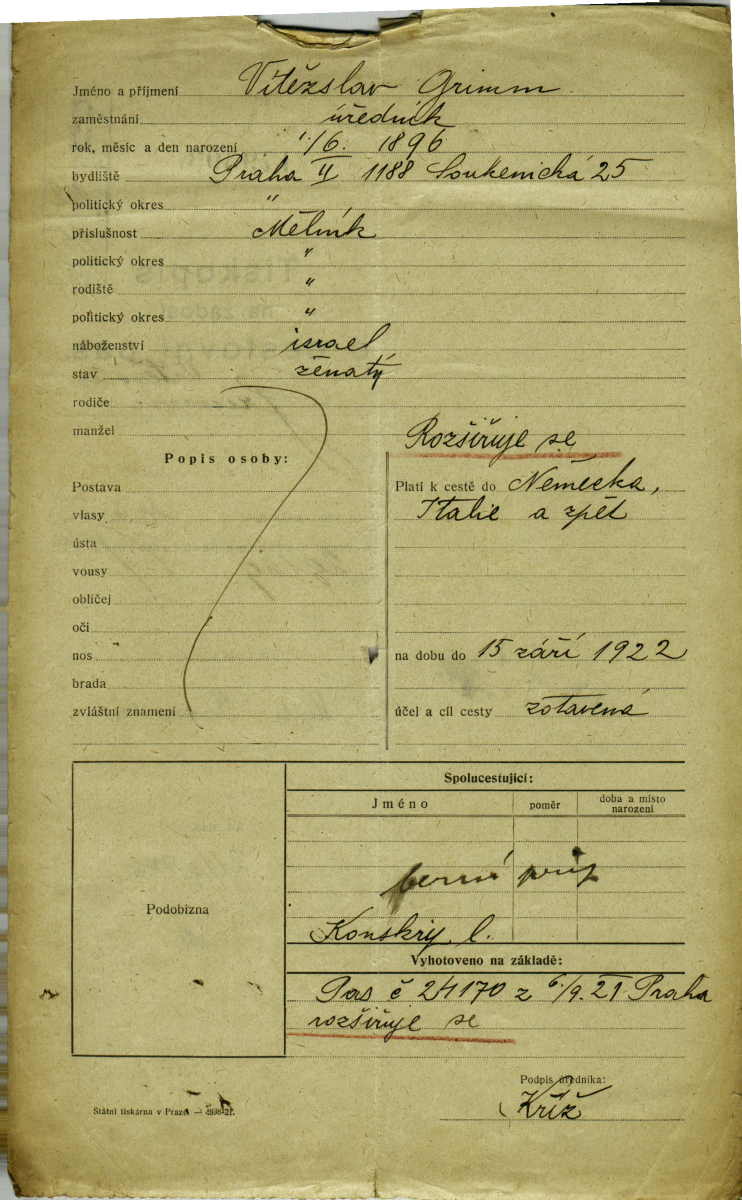 Jméno a příjmení Vítězslav Grimm
zaměstnání úředník
rok, měsíc a den narození 1/6. 1896
bydliště Praha II 1188 Soukenická 25
politický okres "
příslušnost Mělník
politický okres "
rodiště "
politický okres "
náboženství israel
stav ženatý
rodiče
manžel
Popis osoby:
Postava
vlasy
ústa
vousy
obličej
oči
nos
brada
zvláštní znamení
Rozšiřuje se
Platí k cestě do Německa,
Italie a zpět
na dobu do 15 září 1922
účel a cíl cesty zotavená
Podobizna
Spolucestující:
Jméno poměr doba a místo narození
berní
Konskry l.
Vyhotoveno na základě:
Pas č 24170 z 6/9. 21 Praha
rozšiřuje se
Podpis úředníka:
Kříž
Státní tiskárna v Praze